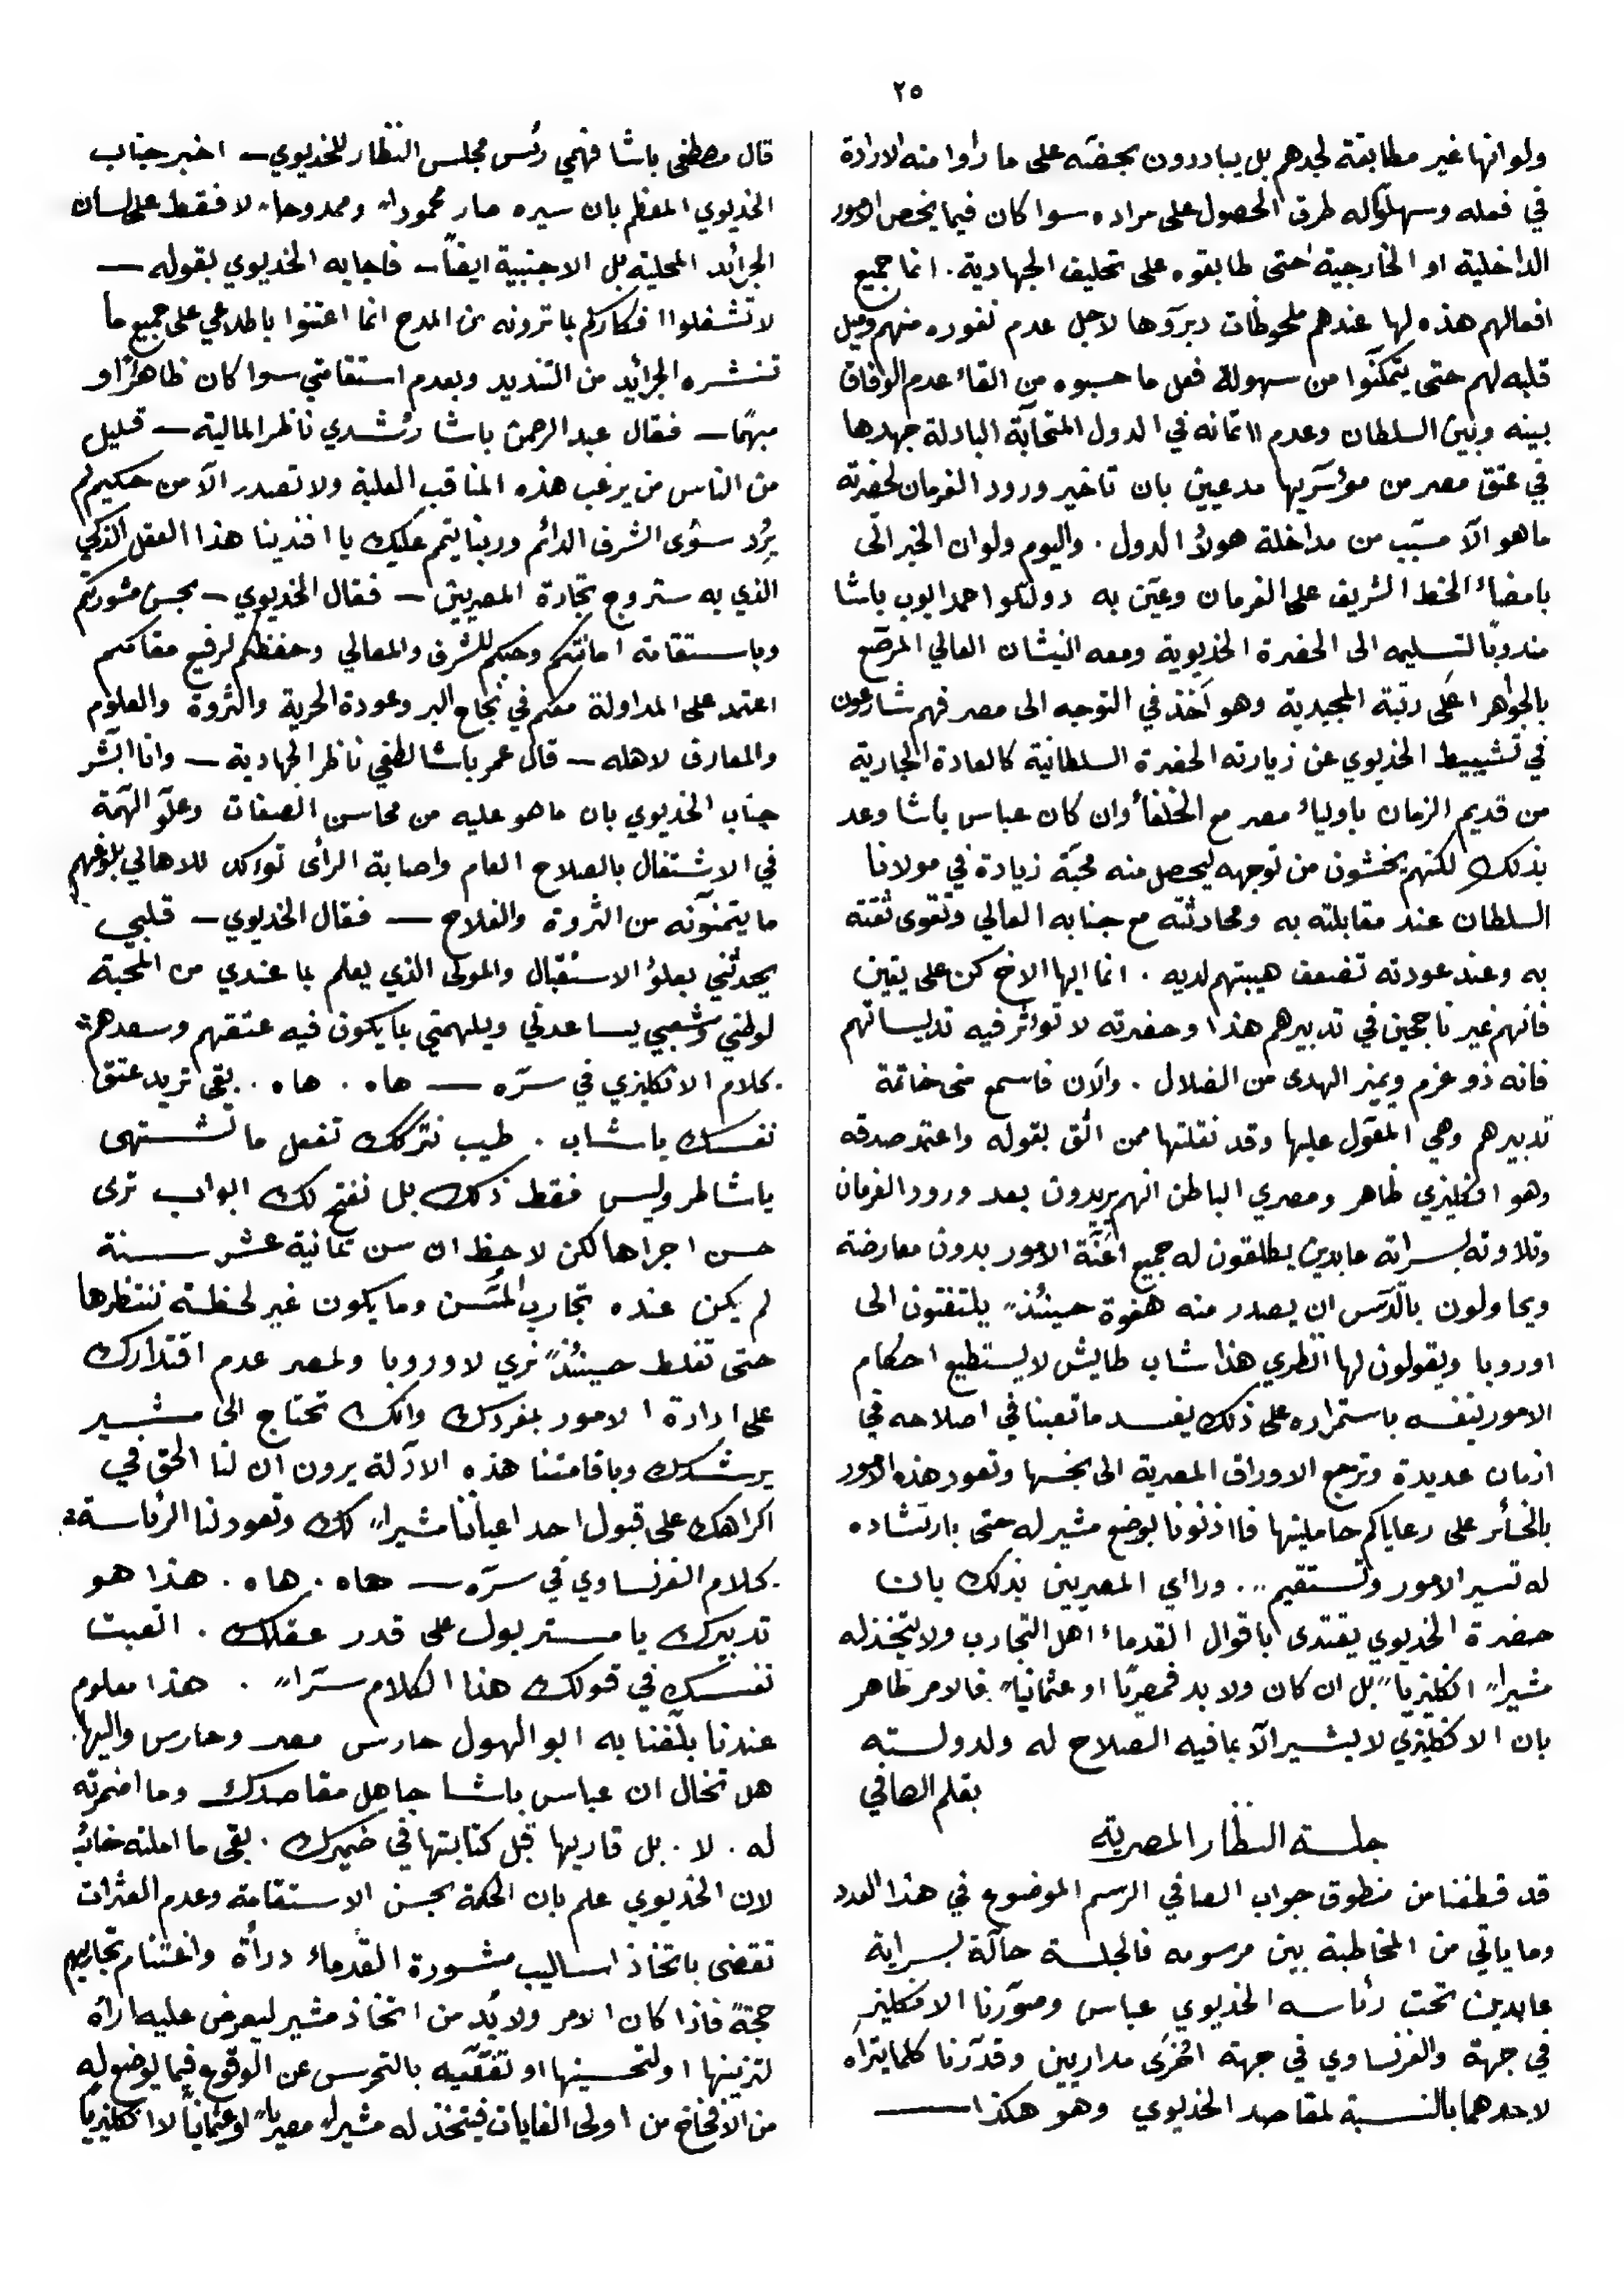 ٢٥
ولو انها غير مطابقة لجدهم بل يبادرون بحضه على ما راوا منه الارادة
في فعله وسهلوا له طرق الحصول على مراده سوا كان فيما يخص الامور
الداخلية او الخارجية حتى طابقوه على تحليف الجهادية. انما جميع
افعالهم هذه لها عندهم ملحوظات دبروها لاجل عدم نفوره منهم وميل
قلبه لهم حتى يتمكنوا من سهولة فعل ما حسبوه من القاء عدم الوفاق
بينه وبين السلطان وعدم ائتمانه في الدول المتحابة الباذلة جهدها
في عتق مصر من مؤسريها مدعيين بان تاخير ورود الفرمان لحضرته
ما هو الاّ مسبّب من مداخلة هولاء الدول. واليوم ولو ان الخبر اتى
بامضاء الخط الشريف على الفرمان وعيّن به دولتلو احمد ايوب باشا
مندوبًا لتسليمه الى الحضرة الخديوية ومعه النيشان العالي المرصّع
بالجواهر اعلى رتبة المجيدية وهو آخذ في التوجه الى مصر فهم شارعون
في تشييط الخديوي عن زيارته الحضرة السلطانية كالعادة الجارية
من قديم الزمان باولياء مصر مع الخلفاء وان كان عباس باشا وعد
بذلك لكنهم يخشون من توجهه ليحصل منه محبّة زيادة في مولانا
السلطان عند مقابلته به ومحادثته مع جنابه العالي وتقوى ثقته
به وعند عودته تضعف هيبتهم لديه. انما ايها الاخ كن على يقين
فانهم غير ناجحين في تدبيرهم هذا وحضرته لا تواثر فيه تدليساتهم
فانه ذو عزم ويميز الهدى من الضلال. والآن فاسمع منى خاتمة
تدبيرهم وهي المعوّل عليها وقد نقلتها ممن اثق بقوله واعتمد صدقه
وهو انكليزي ظاهر ومصري الباطن انهم يريدون بعد ورود الفرمان
وتلاوته بسراته عابدين يطلقون له جميع اعنّة الامور بدون معارضة
ويحاولون بالدّس ان يصدر منه هفوة حينئذ يلتفتون الى
اوروبا ويقولون لها انظري هذا شاب طايش لا يستطيع احكام
الامور بنفسه باستمراره على ذلك يفسد ما تعبنا في اصلاحه في
ازمان عديدة وترجع الاوراق المصرية الى بخسها وتعود هذه الامور
بالخسائر على رعاياكم حامليتها فااذنونا بوضع مشير له حتى بارشاده
له تسير الامور وتستقيم... ورااي المصريين بذلك بان
حضرة الخديوي يقتدى باقوال القدماء اهل التجارب ولا يتخذ له
مشيراً انكليزياً بل ان كان ولا بد فمصريًا او عثمانياً فالامر ظاهر
بان الانكليزي لا يشير الاّ بما فيه الصلاح له ولدولته
بقلم الصافي
جلسة النظار المصرية
قد قطفنا من منطوق جواب الصافي الرسم الموضوع في هذا العدد
وما ياتي من المخاطبة بين مرسومه فالجلسة حالّة بسراية
عابدين تحت رئاسه الخديوي عباس وصوّرنا الانكليز
في جهة والفرنساوي في جهة اخرى مداريين وقدّرنا كلما يتراه
لاحدهما بالنسبة لمقاصد الخديوي وهو هكذا —
قال مصطفى باشا فهمي رئس مجلس النظار للخديوي — اخبر جناب
الخديوي المعظم بان سيره صار محموداً وممدوحاً لا فقط على لسان
الجرائد المحلية بل الاجنبية ايضاً — فاجابه الخديوي بقوله —
لا تشغلوا افكاركم بما ترونه من المدح انما اعتنوا باطلاعي على جميع ما
تنشره الجرائد من التنديد وبعدم استقامتي سوا كان ظاهرًا او
مبهمًا — فقال عبد الرحمن باشا رشدي ناظر المالية — قليل
من الناس من يرغب هذه المناقب العلية ولا تصدر الاّ من حكيم لم
يرد سوى الشرف الدائم وربنا يتمم عليك يا افندينا هذا العقل الذكي
الذي به ستروج تجارة المصريين — فقال الخديوي — بحسن مشورتكم
وباستقامة امانتكم وحبكم للشرف والمعالي وحفظكم لرفيع مقامكم
اعتمد على المداولة معكم في نجاح البر وعودة الحرية والثروة والعلوم
والمعارف لاهله — قال عمر باشا لطفي ناظر الجهادية — وانا ابشّر
جناب الخديوي بان ما هو عليه من محاسن الصفات وعلو الهمّة
في الاشتغال بالصلاح العام واصابة الرأى تواكد للاهالي بلوغهم
ما يتمنونه من الثروة والفلاح — فقال الخديوي — قلبي
يحدثني بعلو الاستقبال والمولى الذي يعلم بما عندي من المحبة
لوطني وشعبي يساعدني ويلهمني بما يكون فيه عتقهم وسعدهم
كلام الانكليزي في سرّه — هاه. هاه. بقى تريد عتق
نفسك يا شاب. طيب نتركك تفعل ما تشتهى
يا شاطر وليس فقط ذلك بل نفتح لك ابواب ترى
حسن اجراها لكن لاحظ ان سن ثمانية عشر سنة
لم يكن عنده تجارب المُسّن وما يكون غير لحظة ننتظرها
حتى تغلط حينئذ نري لاوروبا ولمصر عدم اقتدارك
على ادارة الامور بمفردك وانك تحتاج الى مشير
يرشدك وباقامتنا هذه الادّلة يرون ان لنا الحق في
اكراهك على قبول احد اعياننا مشيراً لك وتعود لنا الرئاسة
كلام الفرنساوي في سرّه — هاه. هاه. هذا هو
تدبيرك يا مستر بول على قدر عقلك. اتعبت
نفسك في قولك هذا الكلام سرّاً. هذا معلوم
عندنا بلّغنا به ابو الهول حارس مصر وحارس واليها.
هل تخال ان عباس باشا جاهل مقاصدك وما اضمرته
له. لا. بل قاريها قبل كتابتها في ضميرك. بقى ما املته خائب
لان الخديوي علم بان الحكمة بحسن الاستقامة وعدم العثرات
تقضى باتخاذ اساليب مشورة القدماء دراة واغتنام تجاربهم
حجةً فاذا كان الامر ولا بُد من اتخاذ مشير ليعرض عليه اراه
لتزينها او لتحسينها او تفقّيه بالتحرس عن الوقوع فيما يوضع له
من الافخاخ من اولى الغايات فيتخذ له مشيراً مصرياً او عثمانياً لا انكليزياً